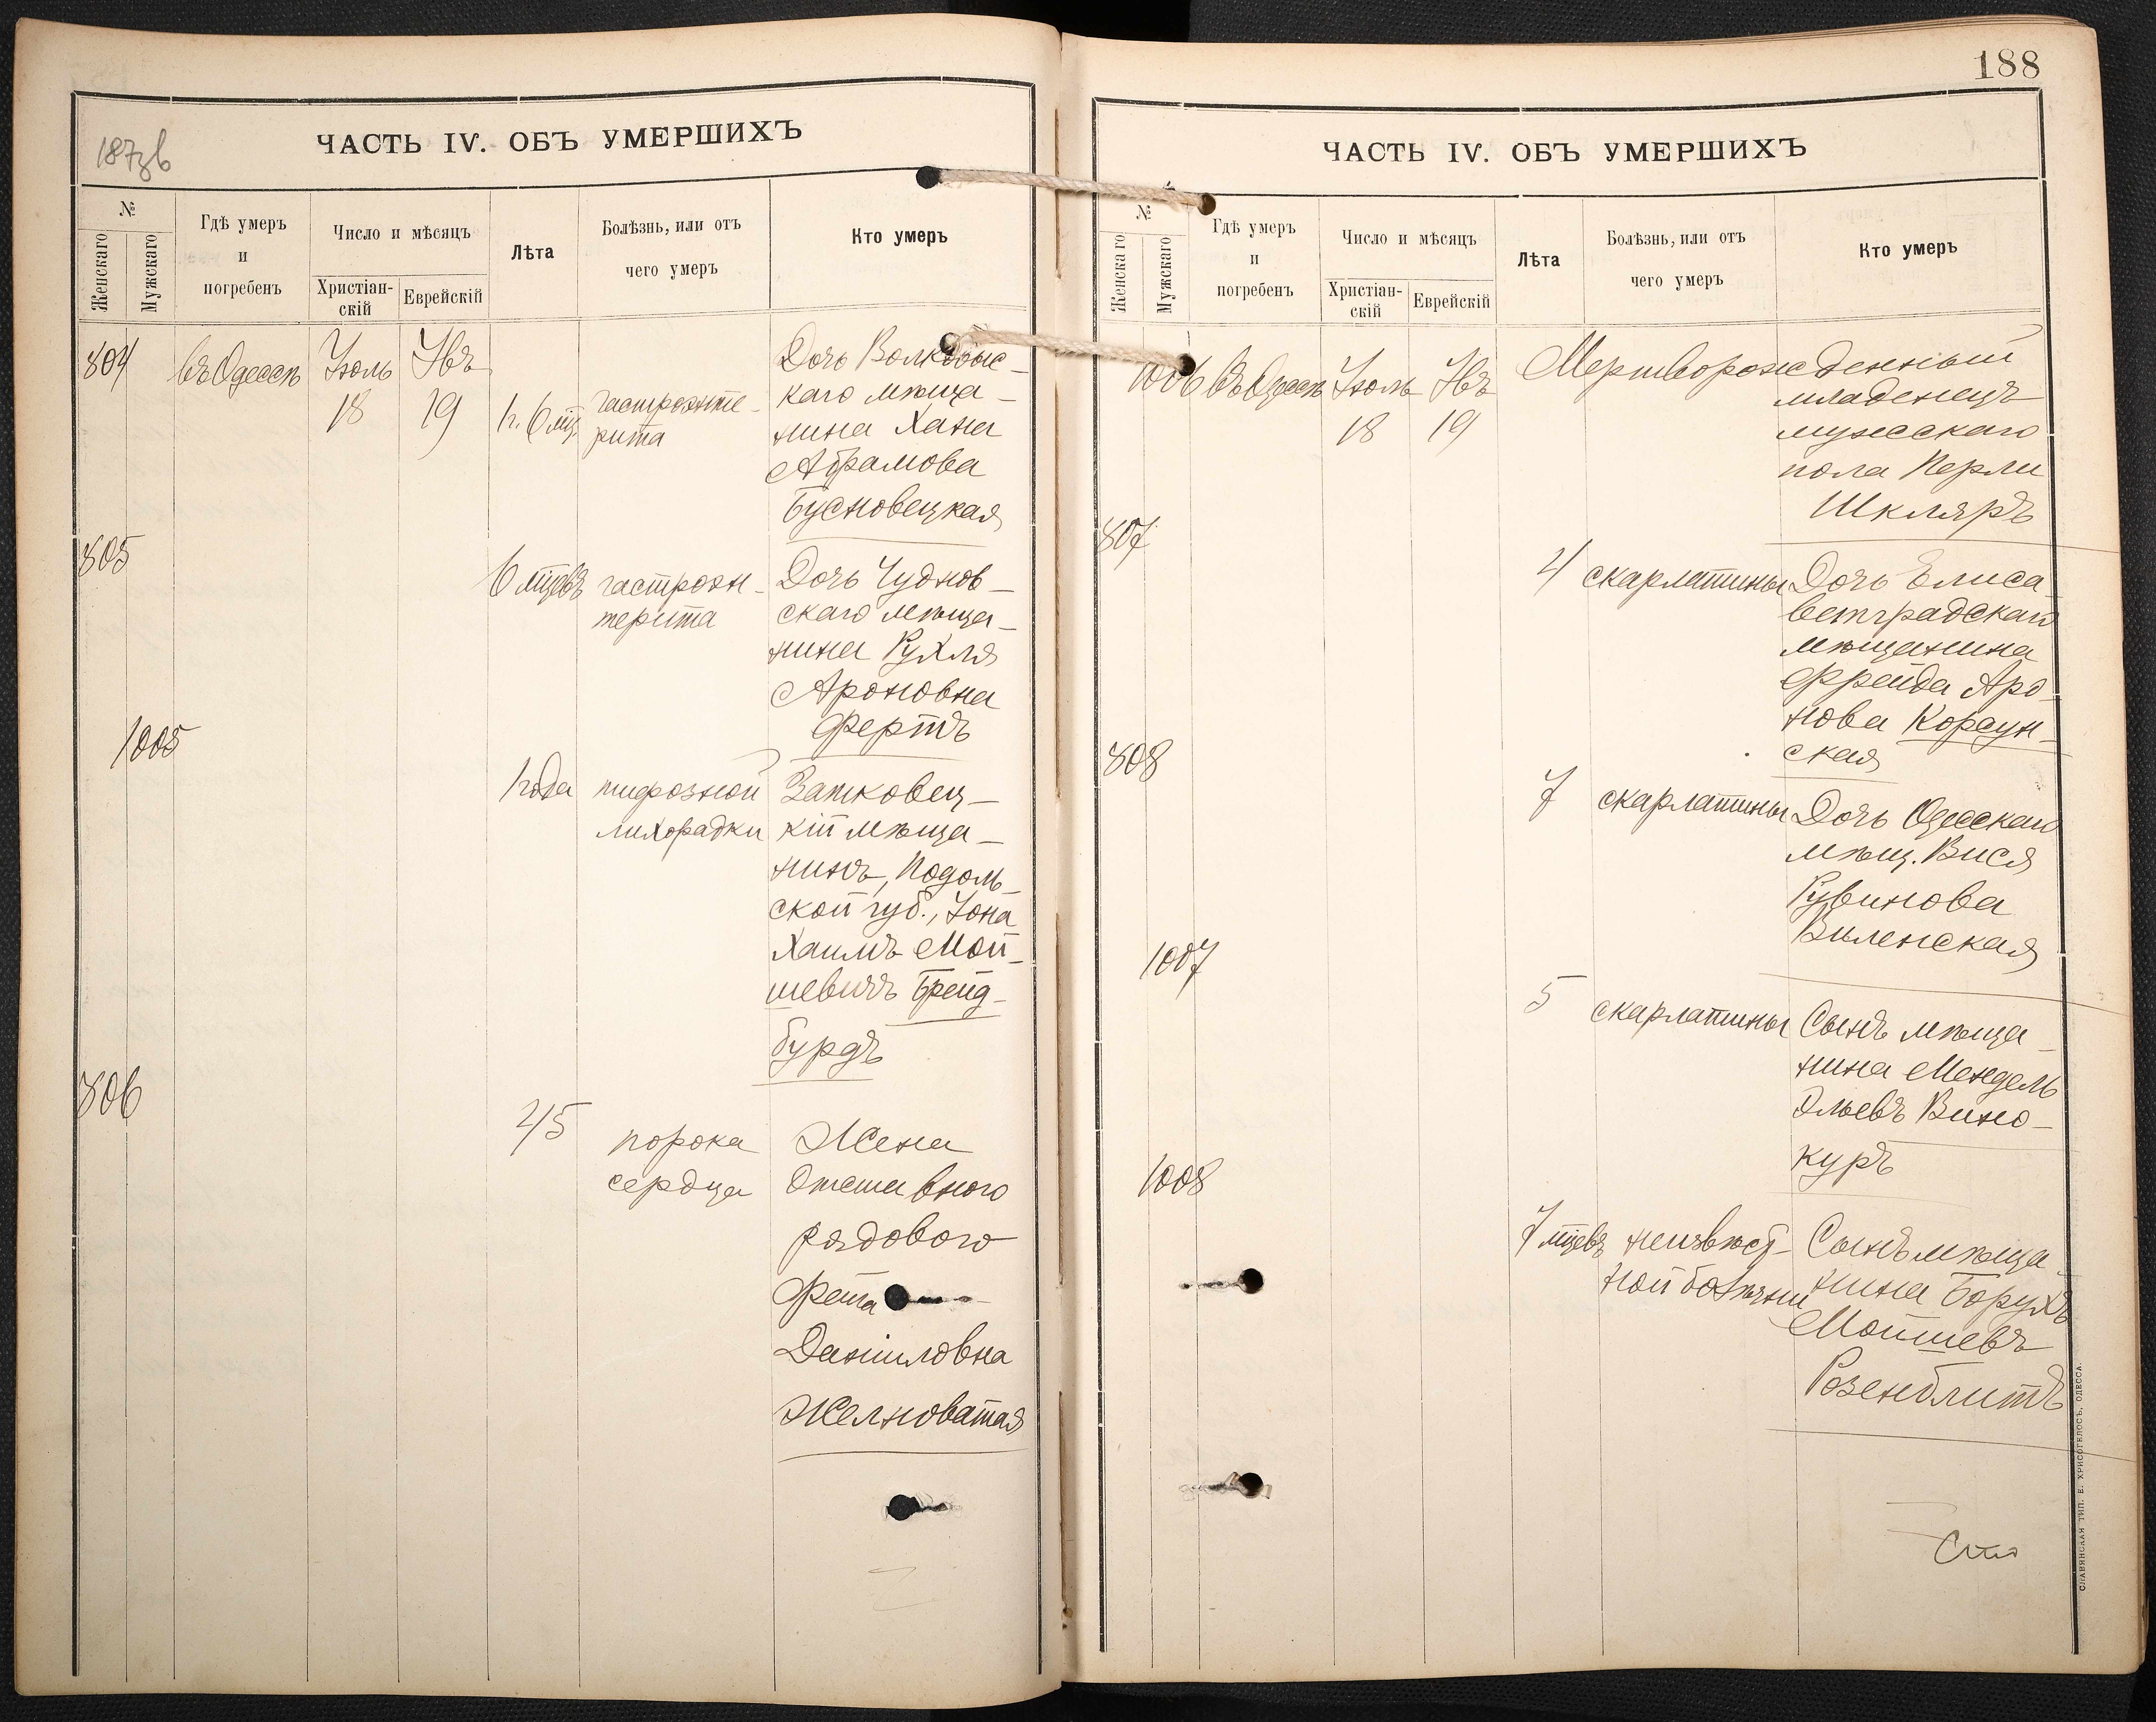 187об
ЧАСТЬ IV. ОБЪ УМЕРШИХЪ
№
Женскаго
Мужскаго
Гдѣ умеръ
и
погребенъ
Число и мѣсяцъ
Христіан-
скій
Еврейскій
Лѣта
Болѣзнь, или отъ
чего умеръ
Кто умеръ
804
въ Одессѣ
Іюль
18
Явъ
19
1 г. 6 мц.
гастроэнте-
рита
Дочь
каго мѣща-
нина Хана
Абрамова
Бусновецкая
805
6 мцевъ
гастроэн-
терита
Дочь Чуднов-
скаго мѣща-
нина Рухля
Ароновна
Фертъ
1005
1 года
тифозной
лихорадки
Затковец-
кій мѣща-
нинъ, Подоль-
ской губ., Іона
Хаимъ Мой-
шевичъ Брейд-
бурдъ
806
45
порока
сердца
Жена
Отставного
рядового
Фейга
Даниловна
Желноватая
188
ЧАСТЬ IV. ОБЪ УМЕРШИХЪ
№
Женскаго
Мужскаго
Гдѣ умеръ
и
погребенъ
Число и мѣсяцъ
Христіан-
скій
Еврейскій
Лѣта
Болѣзнь, или отъ
чего умеръ
Кто умеръ
1006
Въ Одессѣ
Іюль
18
Явъ
19
Мертворожденный
младенецъ
мужескаго
пола Перли
Шкляръ
807
4
скарлатины
Дочь Елиса-
ветградскаго
мѣщанина
Фрейда Аро-
нова Корсун-
ская
808
7
скарлатины
Дочь Одесскаго
мѣщ. Вися
Рувинова
Виленская
1007
5
скарлатины
Сынъ мѣща-
нина Мендель
Эльевъ Вино-
куръ
1008
7 мцевъ
неизвѣст-
ной болѣзни
Сынъ мѣща-
нина Борухъ
Мойшевъ
Розенблитъ
СЛАВЯНСКАЯ ТИП. Е. ХРИСОГЕЛОСЪ, ОДЕССА.